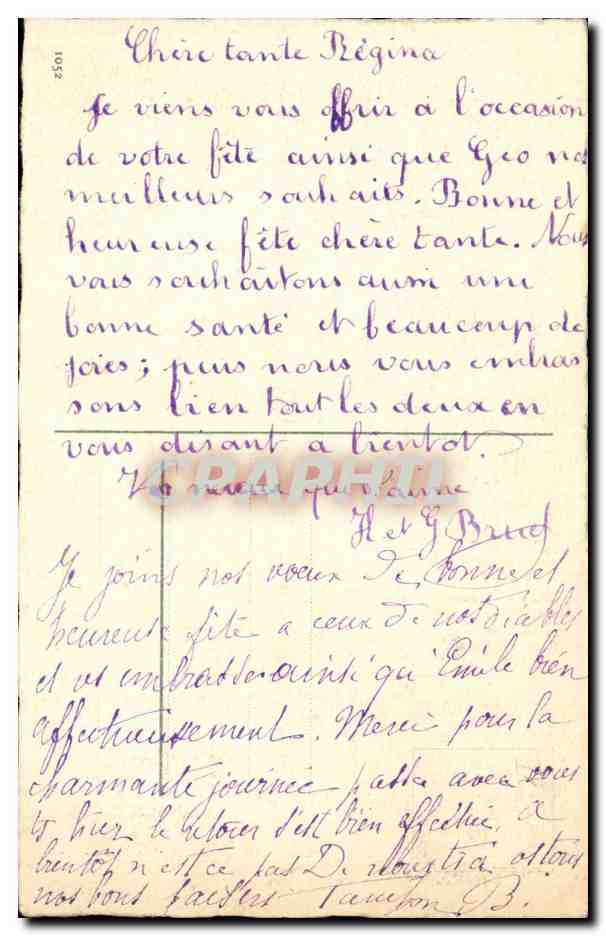 1052
Chère tante Régina
Je viens vous offrir à l'occasion
de votre fête ainsi que Geo nos
meilleurs souhaits. Bonne et
heureuse fête chère tante. Nous
vous souhaitons aussi une
bonne santé et beaucoup de
joies; puis nous vous embras
sons bien tout les deux en
vous disant a bientot.
CPAPHTI
qui t'aime
H et G
Je joins nos vœux de bonne et
heureuse fête a ceux de nos diables
et vs embrasse ainsi qu'Emile bien
affectueusement. Merci pour la
charmante journée passée avec vous
ts hier le retour s'est bien effectué. a
bientôt n'est ce pas
nos bons baisers B.